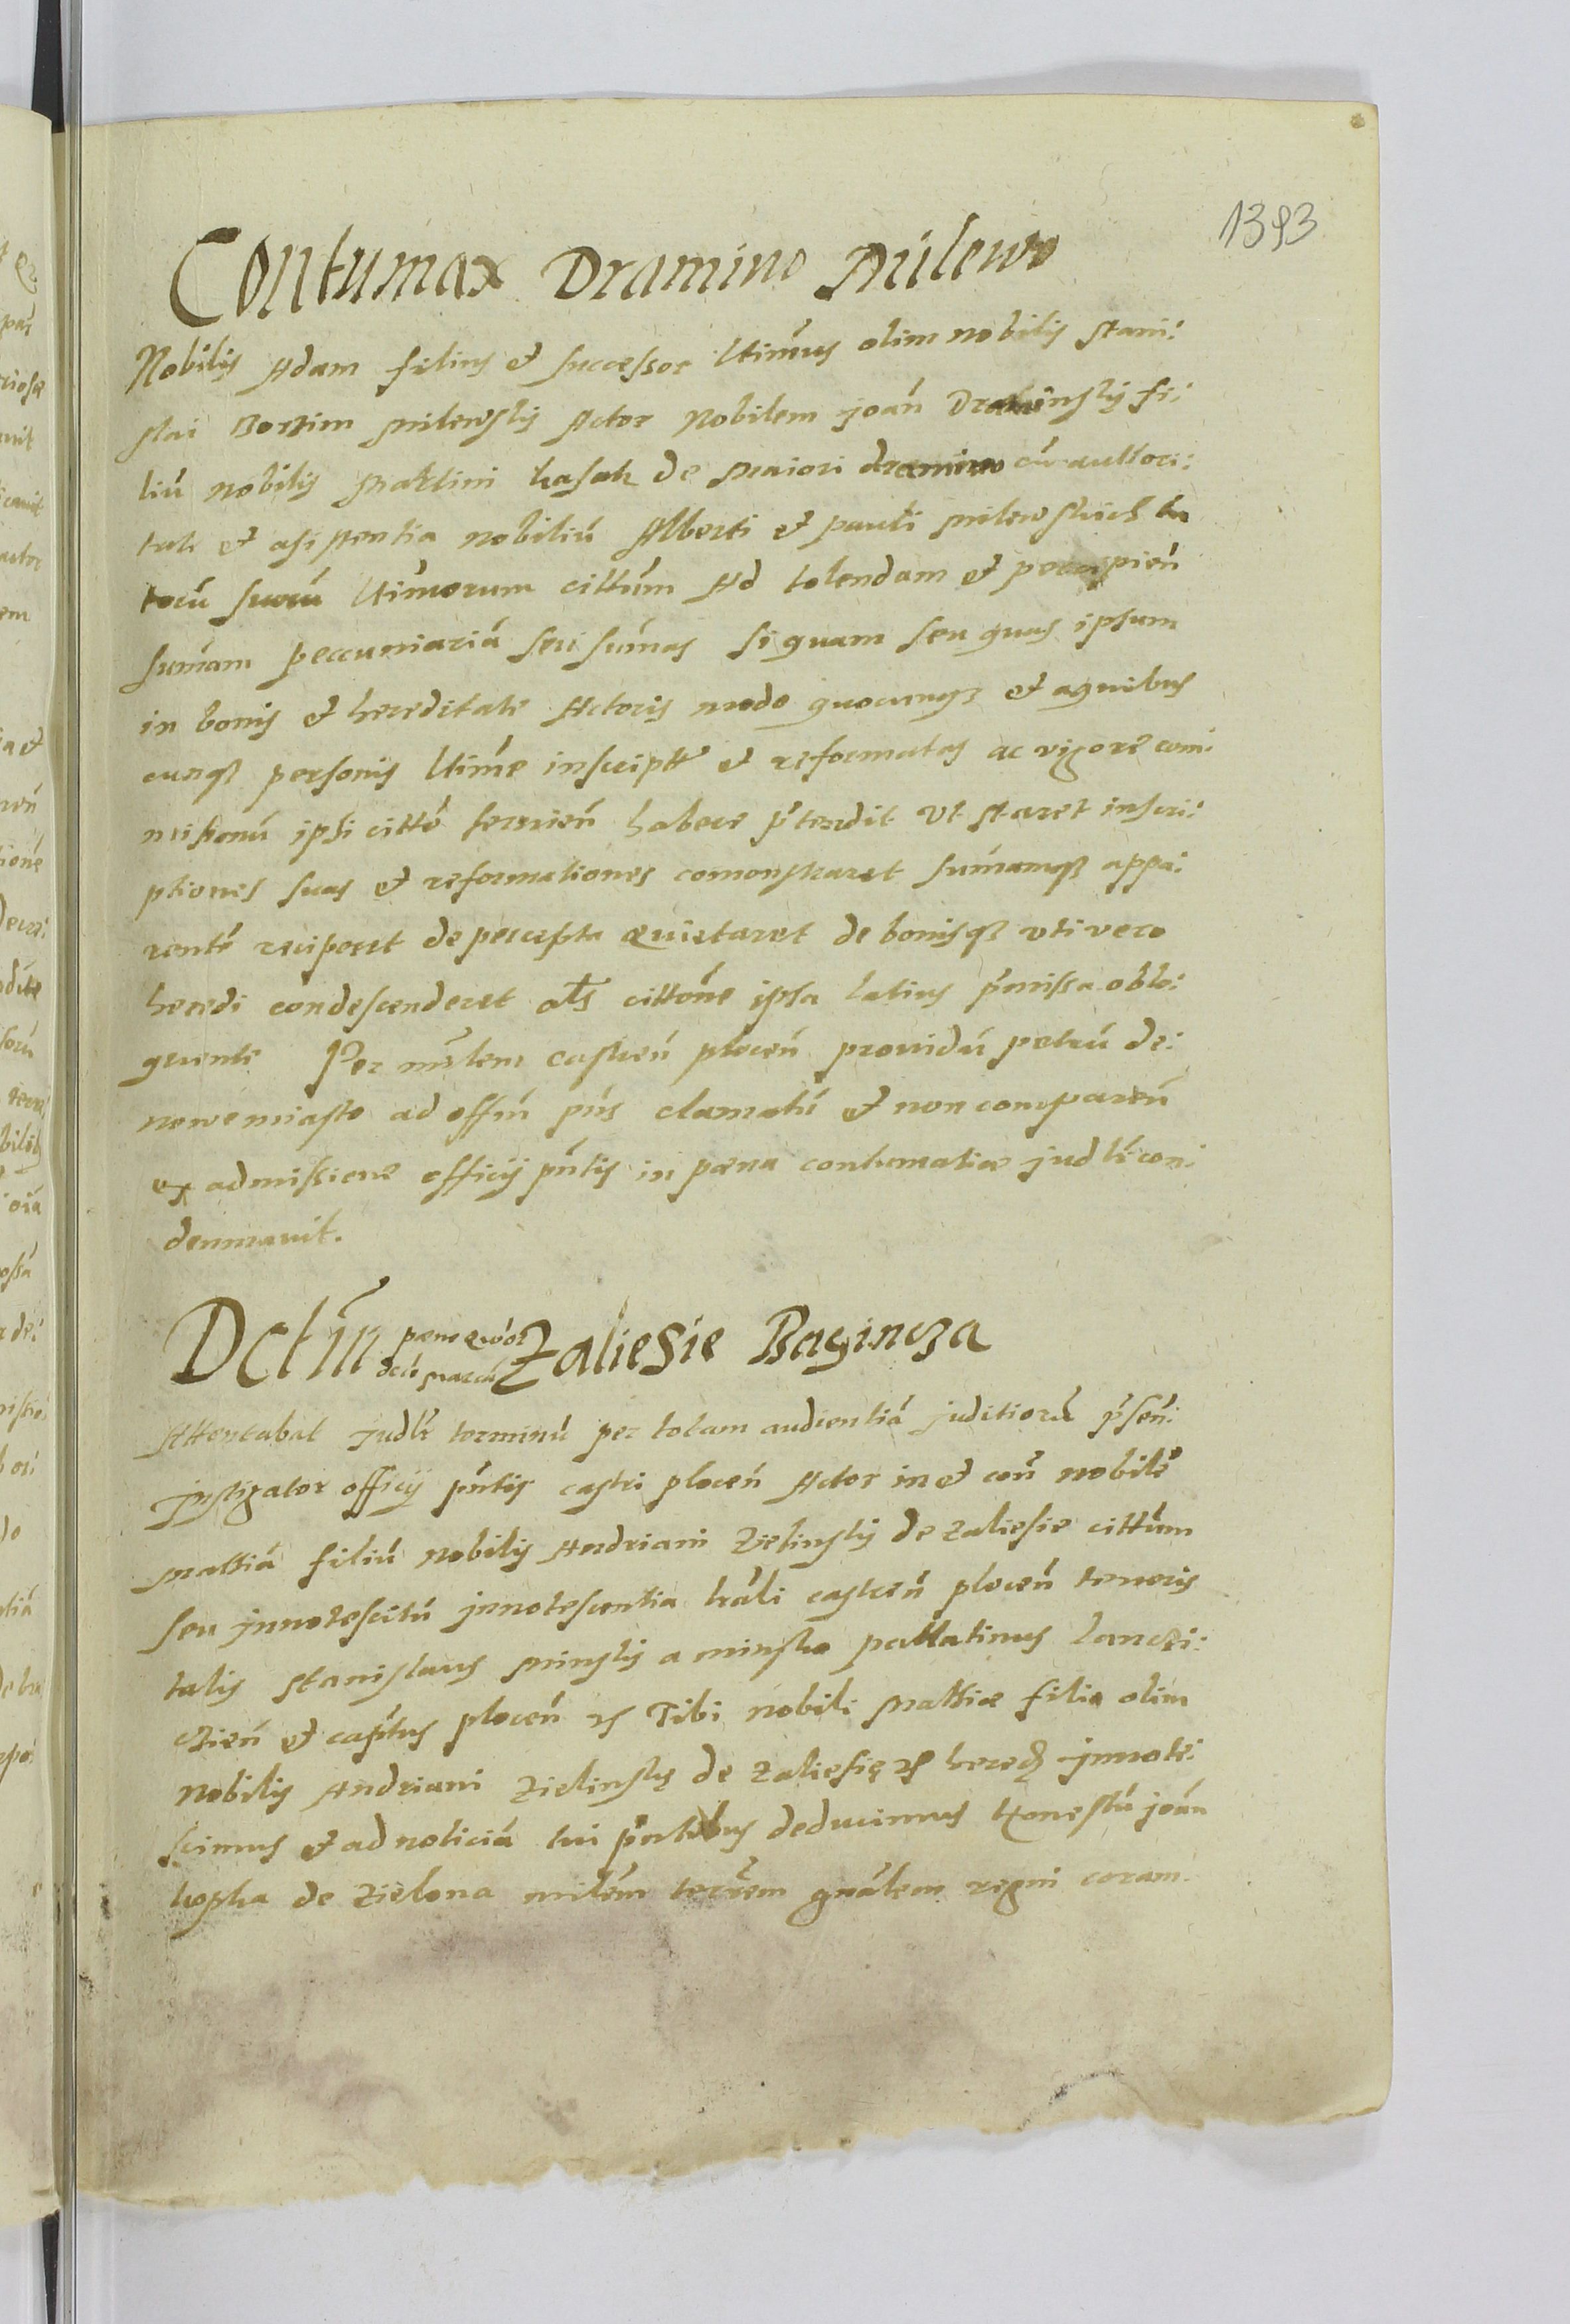 1393
Contumax Dramino Milewo
Nobilis Adam filius et successor ltimus olim nobilis Stani:
slai Borzim Milewskÿ Actor Nobilem joan̄ Draminskÿ fi:
liū nobilis Martini kasak de Maiori dramino cū auttori:
tate et asistentia nobiliū Alberti et pauli Milewskich tu
torū suorū ltimorum cittum Ad tolendam et percipien̄
sum̄am peccuniariā seu sum̄as si quam seu quas ipsum
in bonis et hereditate Actoris modo quocunq3 et a quibus
cunq3 personis ltime inscript et reformatas ac vigore com:
misionū ipsi citto servien̄ habere p̄tendit Ut staret inscri:
ptiones suas et reformationes comonstraret sum̄amq3 appa:
rentē reciperet de percepta quietaret de bonisq3 uti vero
heredi condescenderet als cittone ipsa latius p̄missa oblo:
quente Per mn̄lem castren̄ plocen̄ providū petrū de:
nowemiasto ad offm̄ pn̄s clamatū et non comparen̄
ex admissione officÿ pn̄tis in pœna contumatiæ judlr con:
demnavit.
Dctm̄ Zaliesie Bagincza
Attentabat judlr terminū per totam audientiā juditiorū p̄sen:
Instigator officÿ pn̄tis castri plocen̄ Actor in et con̄ nobilē
Mathiā filiū nobilis Andriani Zielinskÿ de Zaliesie cittum
seu jnnotescitū jnnotescentia lrāli castren̄ plocen̄ tenoris
talis Stanislaus Minskÿ a minsko pallatinus lanczi:
czien̄ et capn̄tus plocen̄ Tibi nobili Mathiæ filio olim
nobilis Andriani Zielinskÿ de Zaliesie hered jnnote:
scimus et ad noticiā tui pn̄tibus deducimus Honestū joān
kopka de Zielona milēm terrēm gnālem regni coram